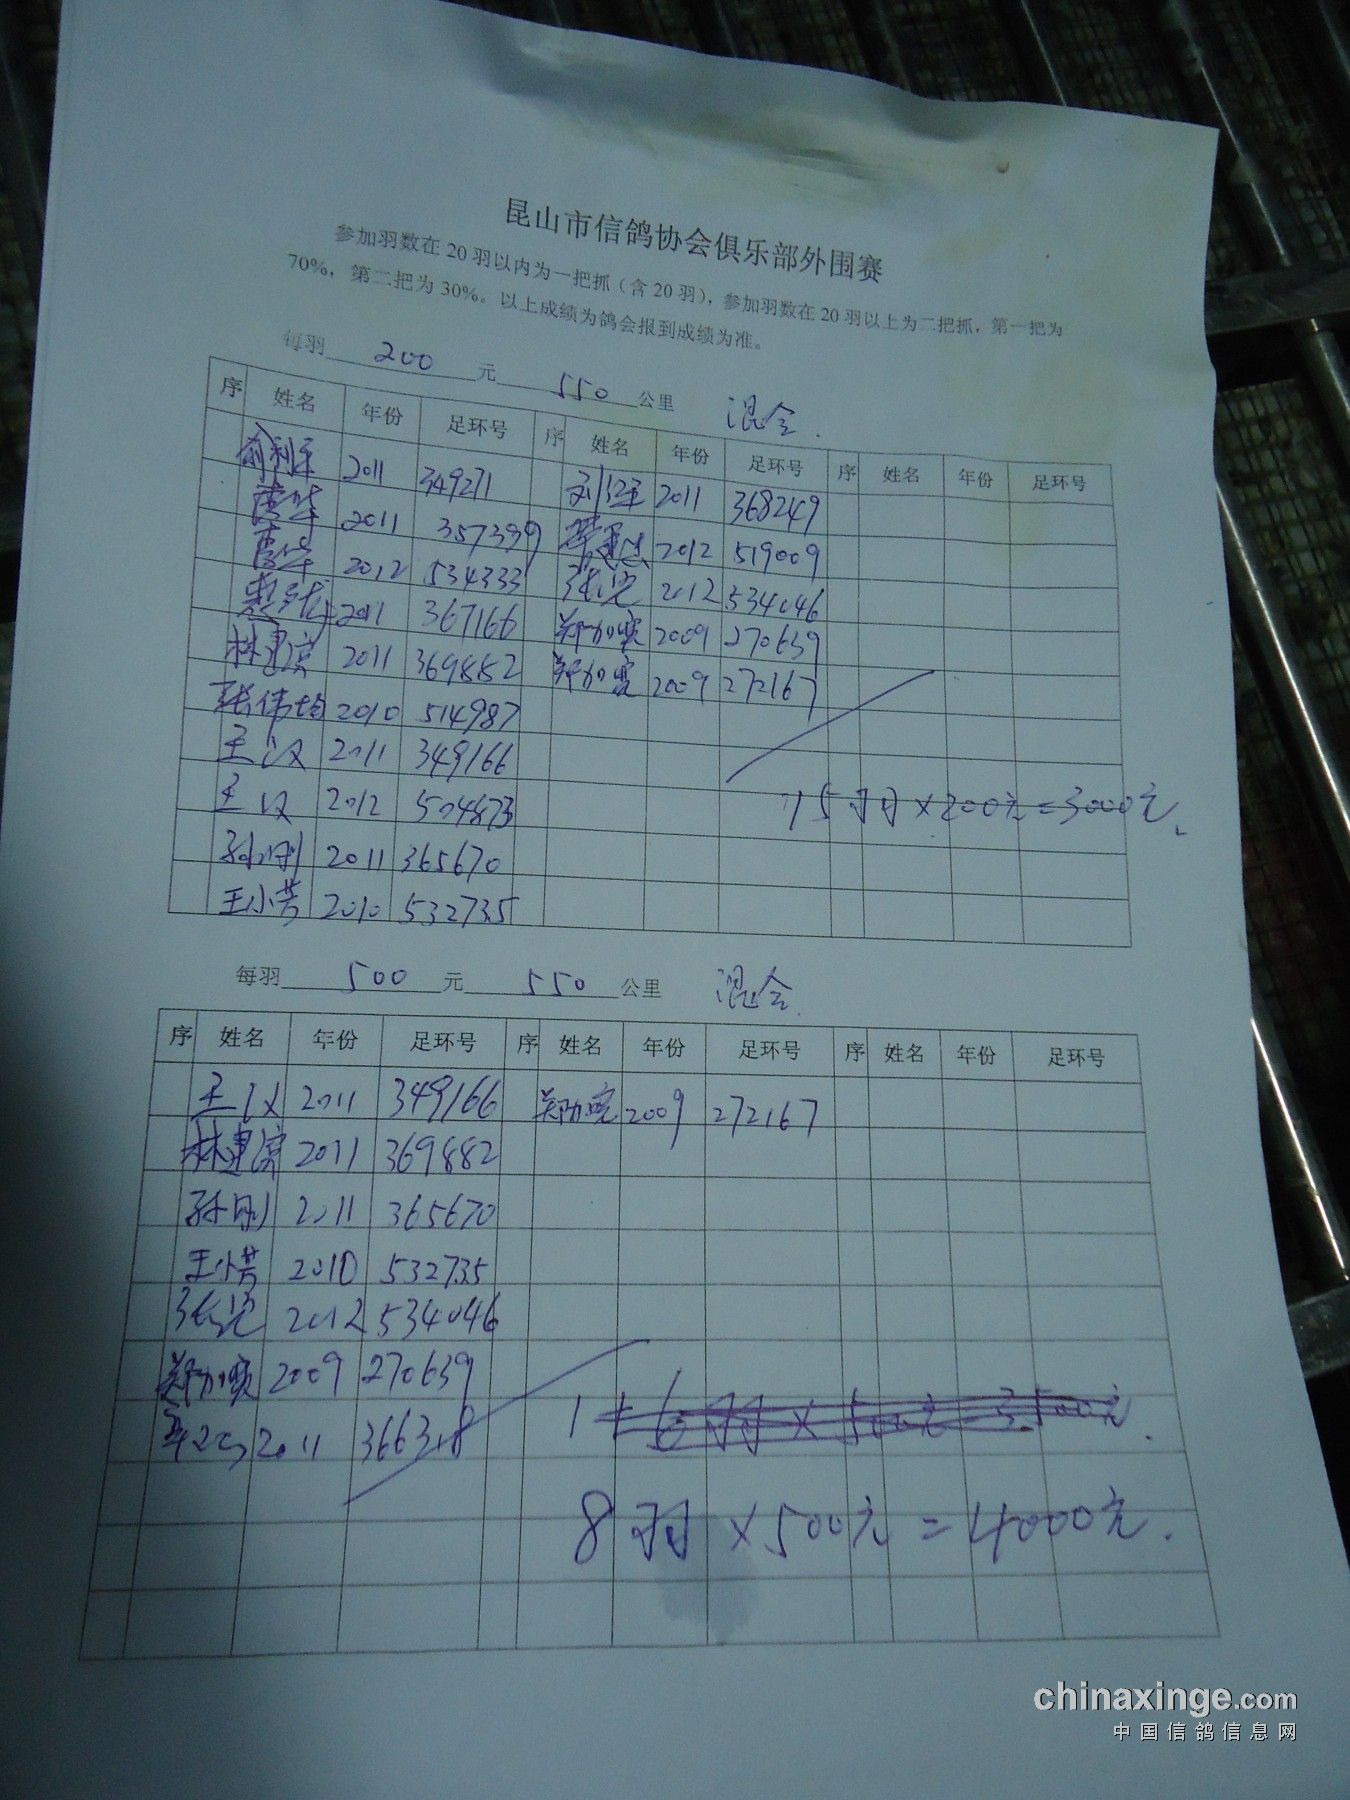 昆山市信鸽协会俱乐部外围赛
参加羽数在20羽以内为一把抓（含20羽），参加羽数在20羽以上为二把抓，第一把为
70%，第二把为30%。以上成绩为鸽会报到成绩为准。
每羽 200 元 550 公里 混合
序 姓名 年份 足环号 序 姓名 年份 足环号 序 姓名 年份 足环号
2011 349271 2011 368249
2011 357399 2012 519009
2012 534333 2012 534046
2011 367166 2009 270639
林建 2011 369882 2009 272167
张伟 2010 514987
王 2011 349166
王 2012 504873
孙刚 2011 365670
王小芳 2010 532735
15羽×200元=3000元
每羽 500 元 550 公里 混合
序 姓名 年份 足环号 序 姓名 年份 足环号 序 姓名 年份 足环号
王 2011 349166 2009 272167
林建 2011 369882
孙刚 2011 365670
王小芳 2010 532735
2012 534046
2009 270639
2011
8羽×500元=4000元.
chinaxinge.com
中国信鸽信息网